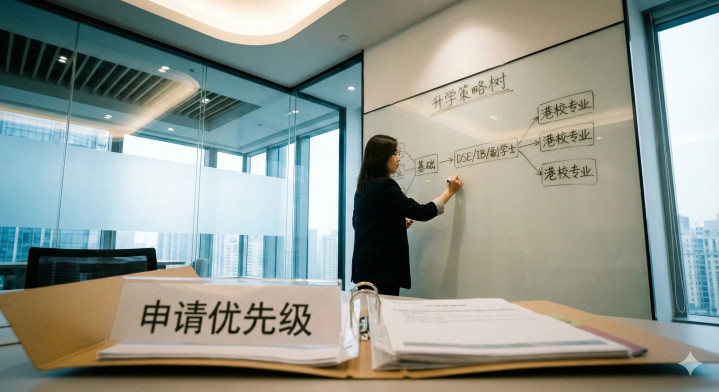 升学策略树
基础
DSE/IB/副学士
港校专业
港校专业
港校专业
申请优先级